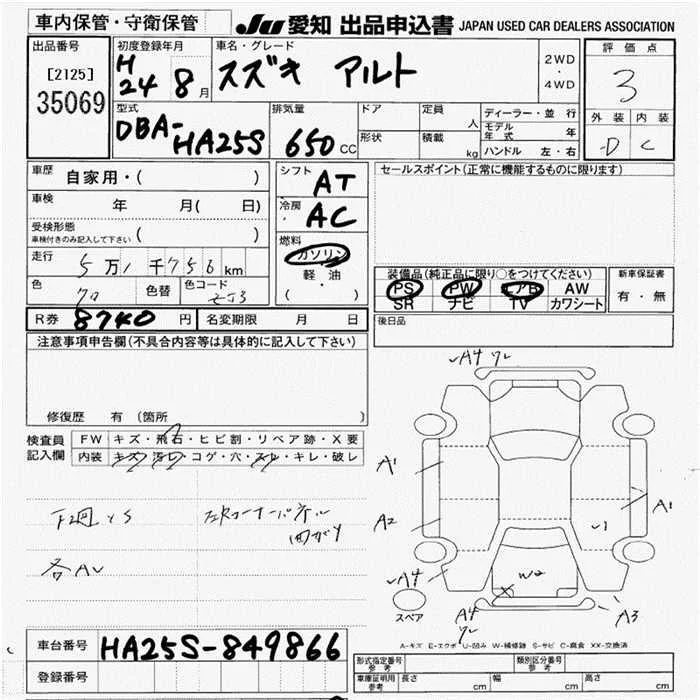 車内保管・守衛保管
JU 愛知 出品申込書 JAPAN USED CAR DEALERS ASSOCIATION
出品番号
[2125]
35069
初度登録年月
H
24 8 月
車名・グレード
スズキ アルト
2WD
・
4WD
評価点
3
外装 内装
D C
型式
DBA-
HA25S
排気量
650 CC
ドア
形状
定員
人
積載
kg
ディーラー・並行
モデル年式 年
ハンドル 左・右
車歴
自家用・( )
車検
年 月( 日)
受検形態
車検付きのみ記入して下さい ( )
走行
5万1千756km
色
色替
色コード
ZJ3
シフト
AT
冷房
AC
燃料
ガソリン
軽・油
( )
セールスポイント(正常に機能するものに限ります)
装備品(純正品に限り○をつけてください)
PS PW エアB AW
SR ナビ TV カワシート
新車保証書
有・無
R券 8740 円 名変期限 月 日
後日品
注意事項申告欄(不具合内容等は具体的に記入して下さい)
修復歴 有(箇所 )
検査員
記入欄
FW キズ・飛石・ヒビ割・リペア跡・X要
内装 キズ・汚れ・コゲ・穴・スレ・キレ・破レ
下廻りS
左リコーナーパネル
曲がり
各AU
A4 ワレ
A1
A2
A4
A1
U1
W2
A4
ワレ
A3
スペア
A-キズ E-エクボ U-凹み W-補修跡 S-サビ C-腐食 XX-交換済
車台番号 HA25S-849866
登録番号
型式指定番号
参考
類別区分番号
参考
車庫証明用
参考
長さ cm
幅 cm
高さ cm